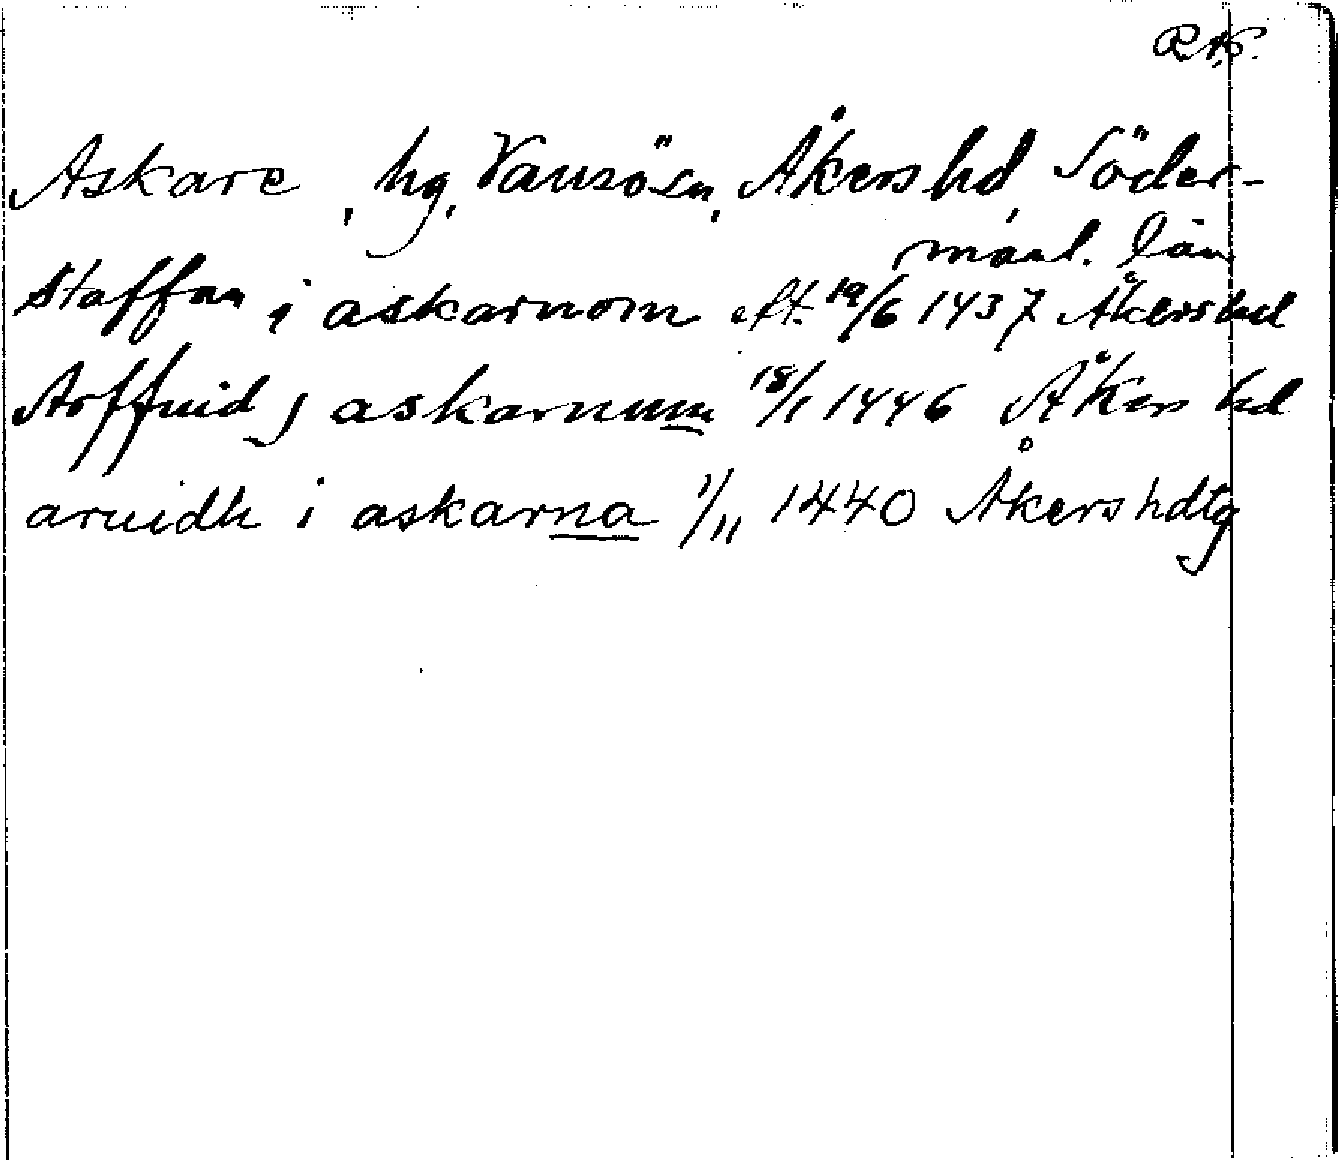 R A S.
Askare, hg, Vansö sn, Åkers hd, Söder-
manl. län
Staffan i askarnom eft. 19/6 1437 Åkers hd
Arffuid j askarnum 18/1 1446 Åkers hd
aruidh i askarna 1/11 1440 Åkers hdtg